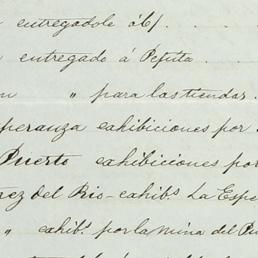 entregadole á 6/
entregado á Pepita
" para las tiendas
peranza exhibiciones por
Puerto exhibiciones por
rez del Rio - exhib.s La Espe
" exhib.s por la mina del Pu